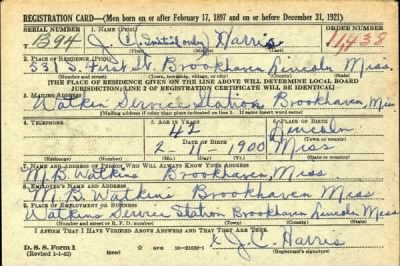 REGISTRATION CARD—(Men born on or after February 17, 1897 and on or before December 31, 1921)
SERIAL NUMBER 1. NAME (Print) ORDER NUMBER
B94 J. C. (initial only) Harris 11,438
(First) (Middle) (Last)
2. PLACE OF RESIDENCE (Print)
331 S. First St. Brookhaven Lincoln Miss.
(Number and street) (Town, township, village, or city) (County) (State)
[THE PLACE OF RESIDENCE GIVEN ON THE LINE ABOVE WILL DETERMINE LOCAL BOARD
JURISDICTION; LINE 2 OF REGISTRATION CERTIFICATE WILL BE IDENTICAL]
3. MAILING ADDRESS
Watkin Service Station Brookhaven, Miss
[Mailing address if other than place indicated on line 2. If same insert word same]
4. TELEPHONE 5. AGE IN YEARS 6. PLACE OF BIRTH
42 Lincoln
DATE OF BIRTH (Town or county)
2-11-1900 Miss
(Exchange) (Number) (Mo.) (Day) (Yr.) (State or country)
7. NAME AND ADDRESS OF PERSON WHO WILL ALWAYS KNOW YOUR ADDRESS
M.B. Watkins Brookhaven, Miss.
8. EMPLOYER'S NAME AND ADDRESS
M.B. Watkins Brookhaven Miss
9. PLACE OF EMPLOYMENT OR BUSINESS
Watkins Service Station Brookhaven Lincoln Miss
(Number and street or R. F. D. number) (Town) (County) (State)
I AFFIRM THAT I HAVE VERIFIED ABOVE ANSWERS AND THAT THEY ARE TRUE.
D. S. S. Form 1 GPO 16-21630-1 x J.C. Harris
(Revised 1-1-42) (over) (Registrant's signature)